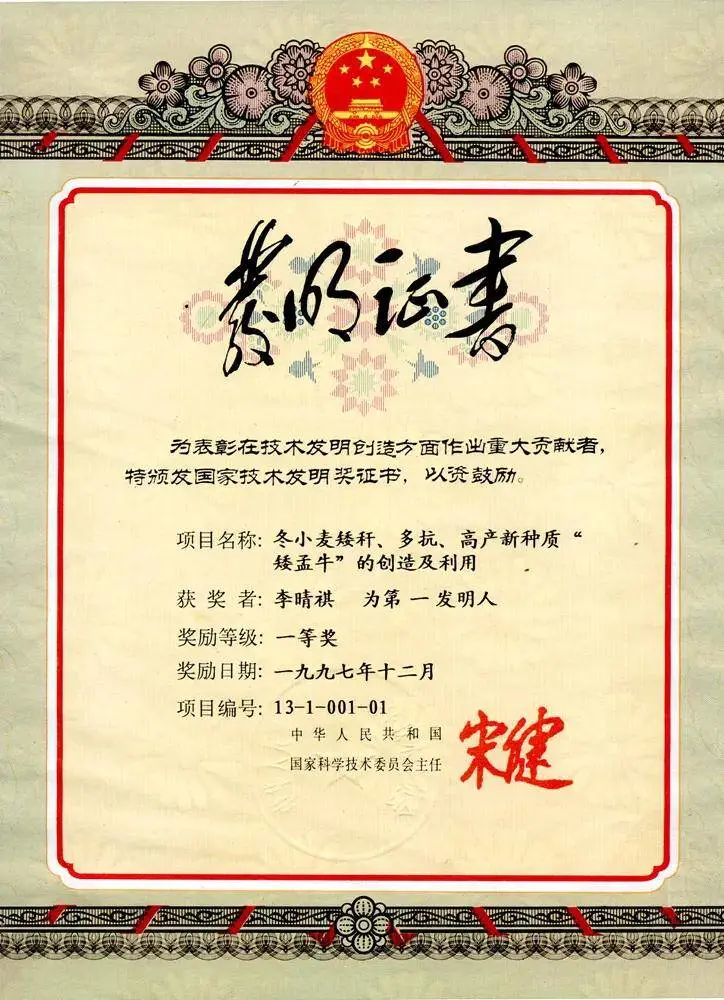 發明证書
为表彰在技术发明创造方面作出重大贡献者，
特颁发国家技术发明奖证书，以资鼓励。
项目名称：冬小麦矮秆、多抗、高产新种质“
矮孟牛”的创造及利用
获奖者：李晴祺　为第一发明人
奖励等级：一等奖
奖励日期：一九九七年十二月
项目编号：13-1-001-01
中华人民共和国
国家科学技术委员会主任
宋健